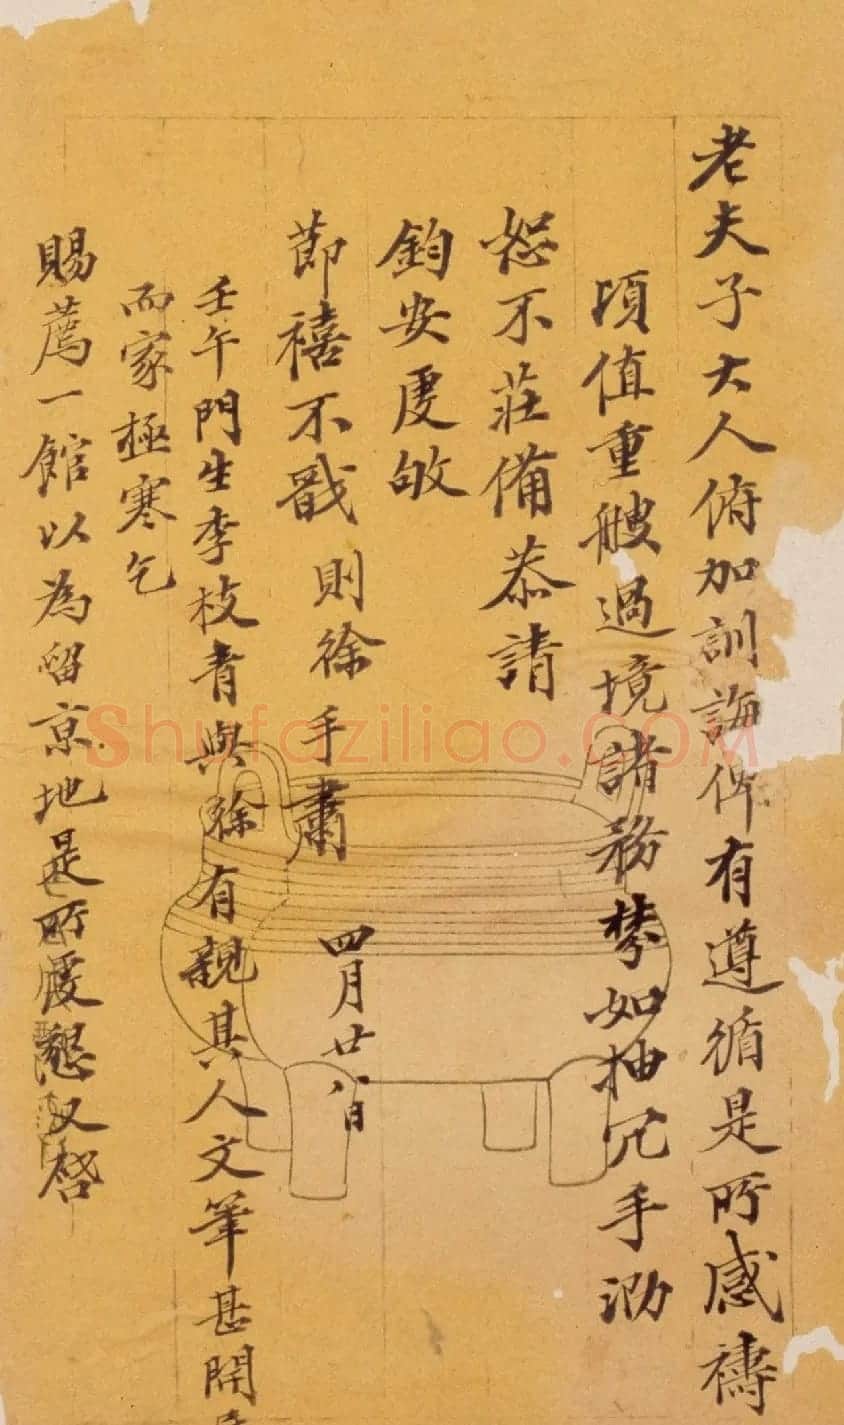 老夫子大人俯加訓誨俾有遵循是所感禱
頃值重艘過境諸務棼如抽冗手泐
恕不莊備恭請
鈞安虔敂
節禧不戬則徐手肅
四月廿八日
壬午門生李枝青與徐有親其人文筆甚開
而家極寒乞
賜薦一館以為留京地是所愛懇又啓
Shufaziliao.COM